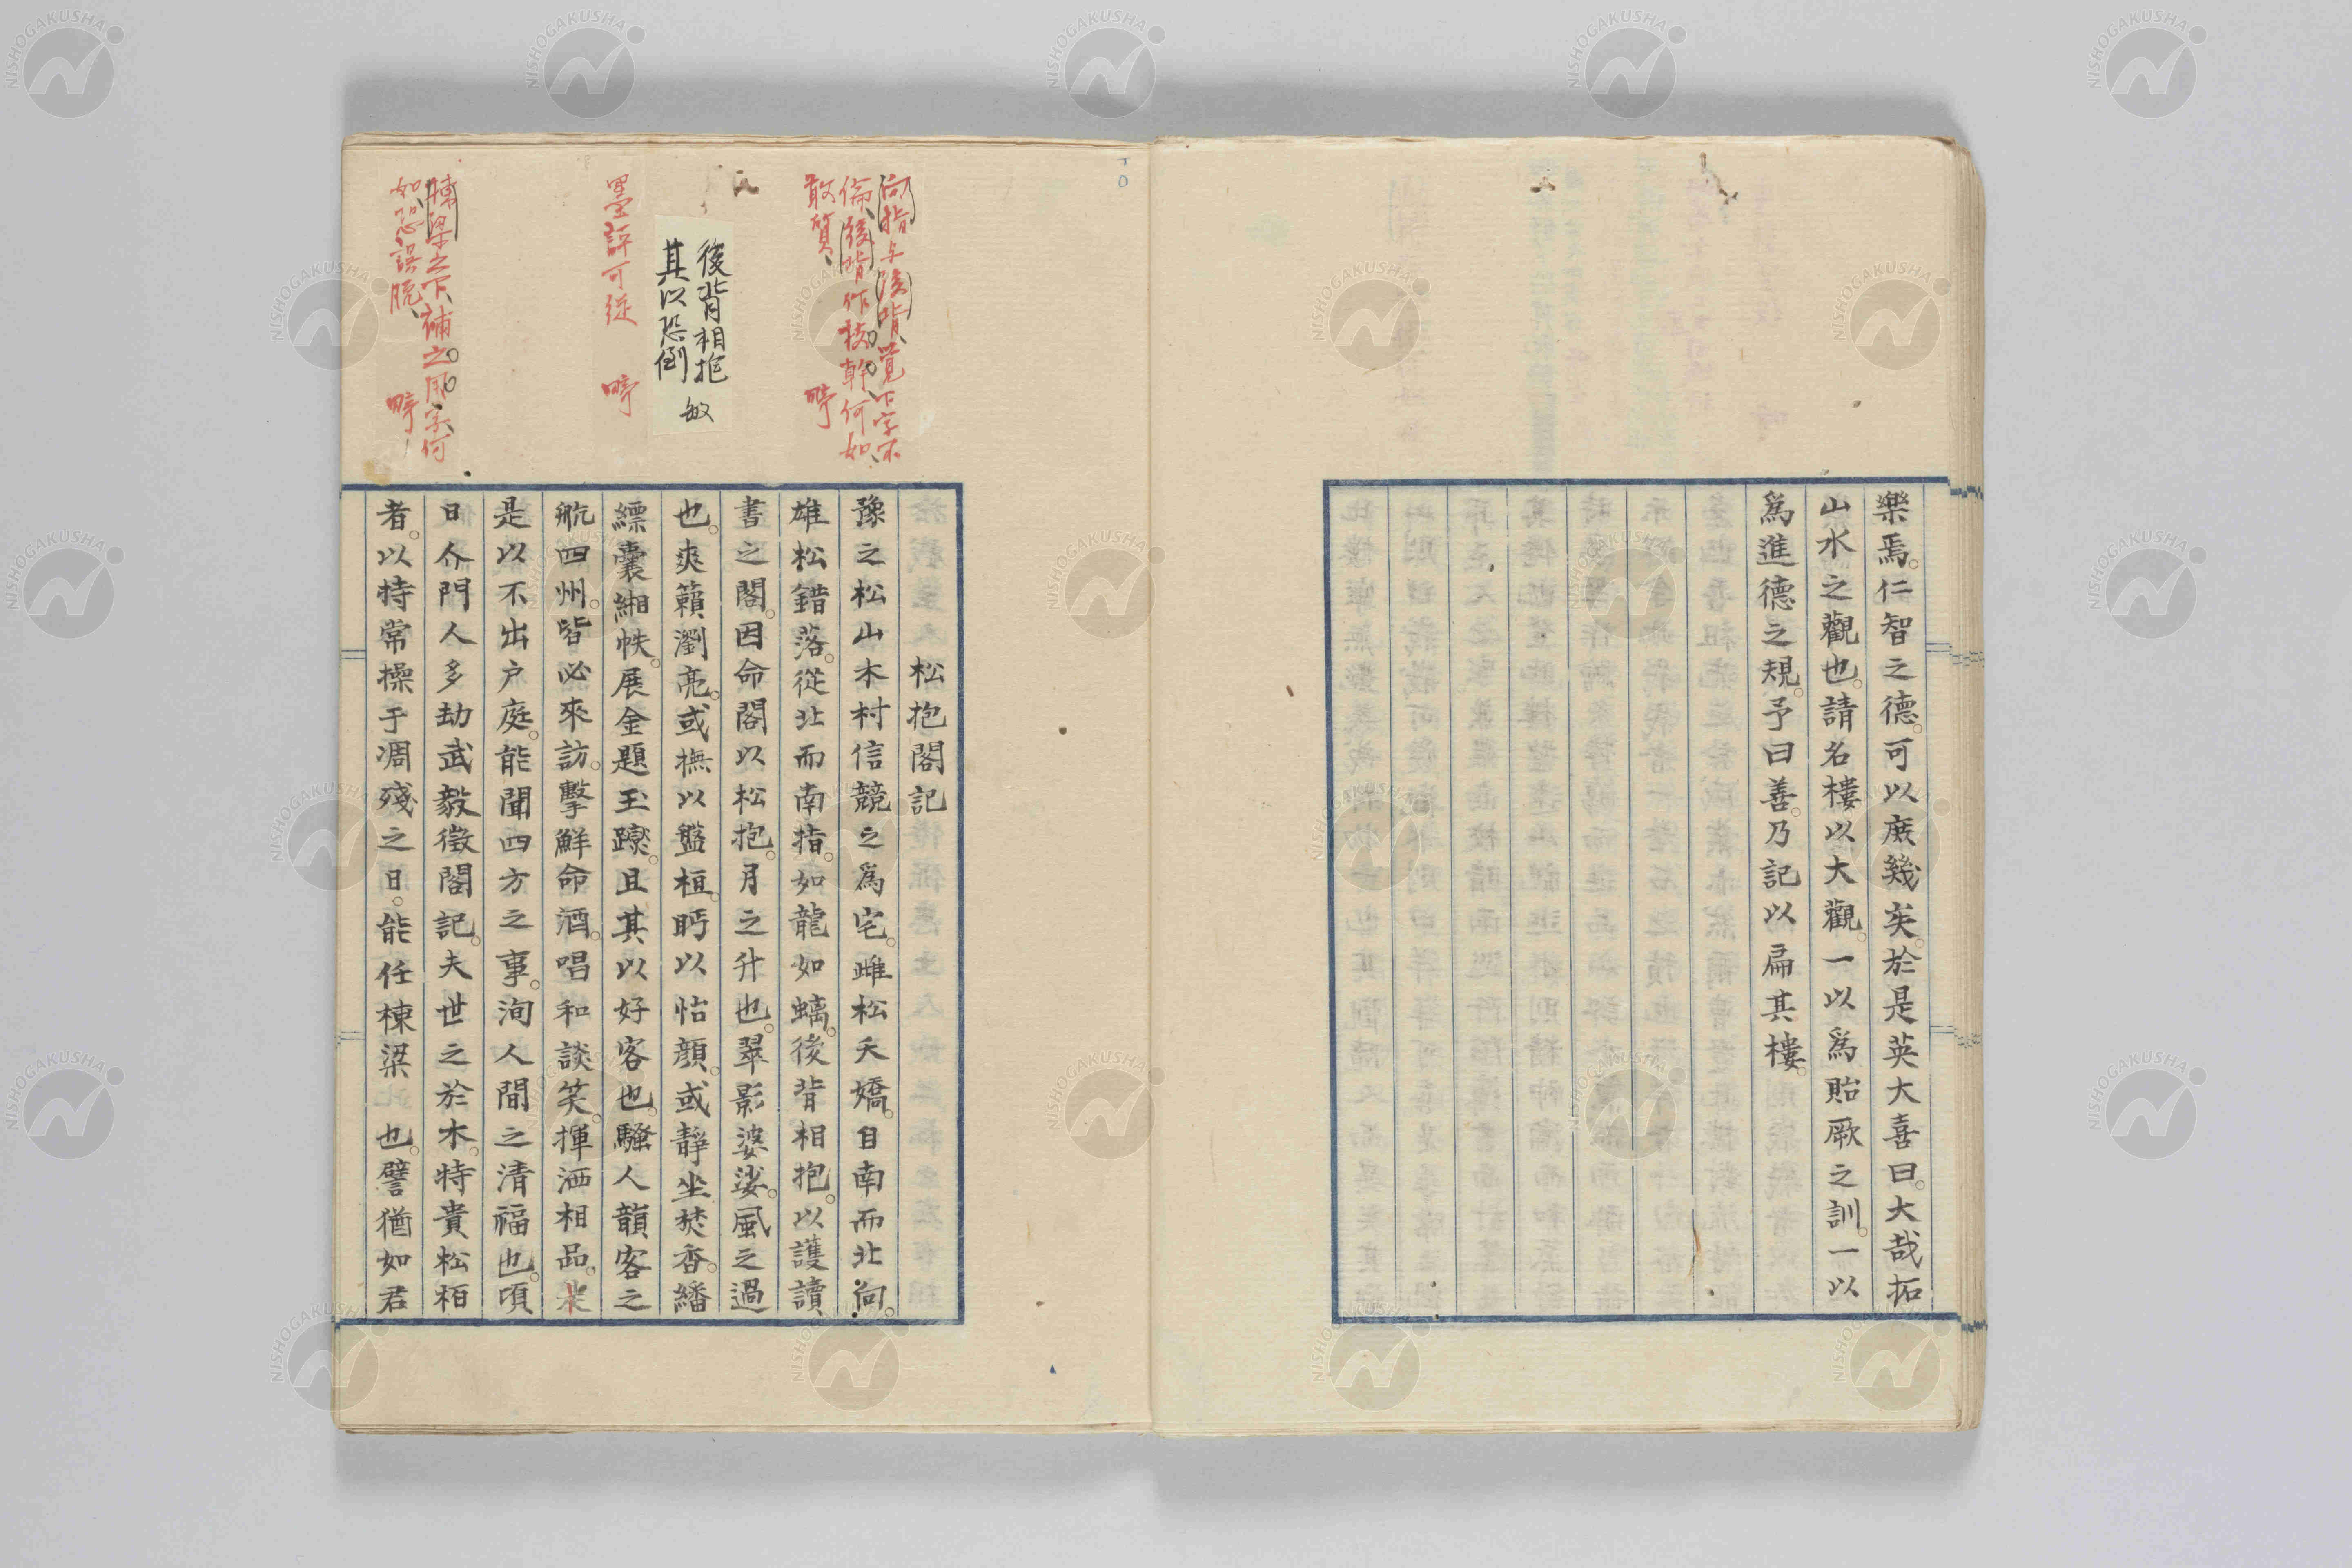 樂焉。仁智之德。可以庶幾矣。於是英大喜曰。大哉拓
山水之觀也。請名樓以大觀。一以爲貽厥之訓。一以
爲進德之規。予曰善。乃記以扁其樓。
向指與後背、覺下字不
倫、後背作枝幹、何如、
敢質、 疇
後背相抱
其以恐倒 敏
墨評可從 疇
棟梁之下、補之用字、何
如、恐誤脫、 疇
松抱閣記
豫之松山木村信競之爲宅。雌松夭矯。自南而北向。
雄松錯落。從北而南指。如龍如螭。後背相抱。以護讀
書之閣。因命閣以松抱。月之升也。翠影婆娑。風之過
也。爽籟瀏亮。或撫以盤桓。眄以怡顏。或靜坐焚香。繙
縹囊緗帙。展金題玉躞。且其以好客也。騷人韻客之
航四州。皆必來訪。擊鮮命酒。唱和談笑。揮洒相品。
是以不出户庭。能聞四方之事。洵人間之清福也。頃
日介門人多劫武毅徵閣記。夫世之於木。特貴松栢
者。以特常操于凋殘之日。能任棟梁也。譬猶如君
NISHOGAKUSHA